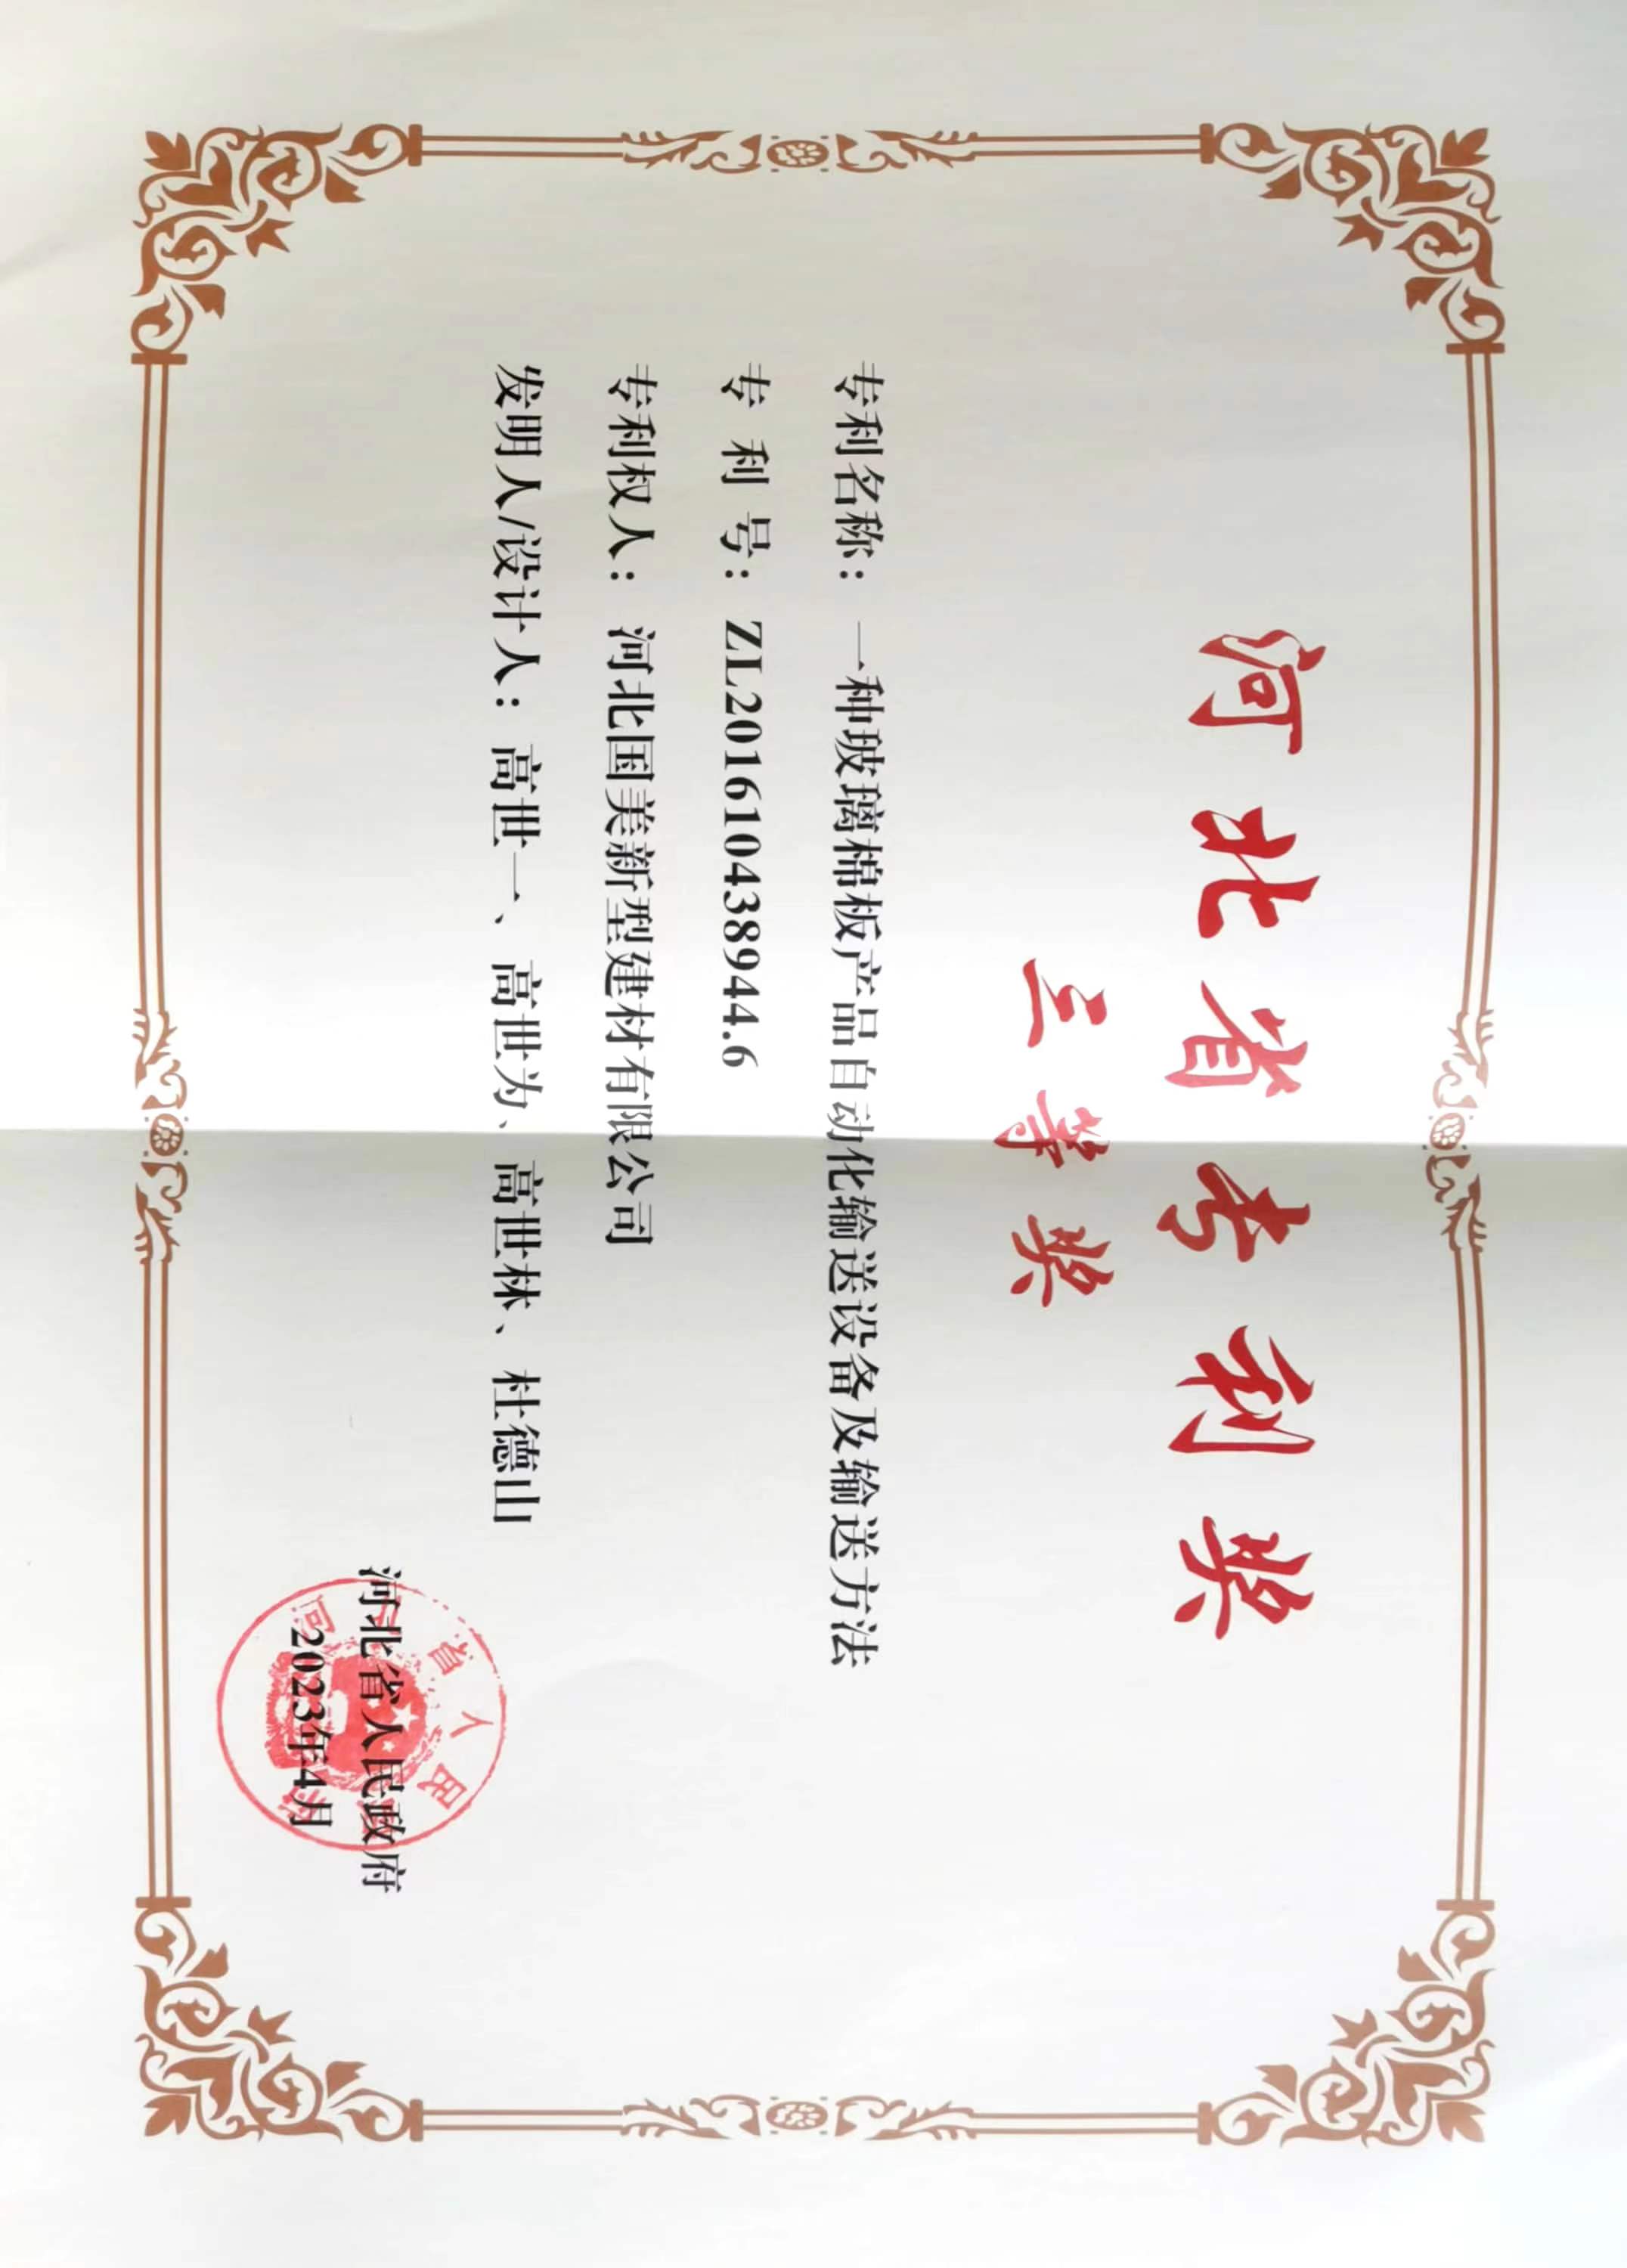 河北省专利奖
三等奖
专利名称：一种玻璃棉板产品自动化输送设备及输送方法
专 利 号：ZL201610438944.6
专利权人：河北国美新型建材有限公司
发明人/设计人：高世一、高世为、高世林、杜德山
河北省人民政府
2023年4月
河北省人民政府